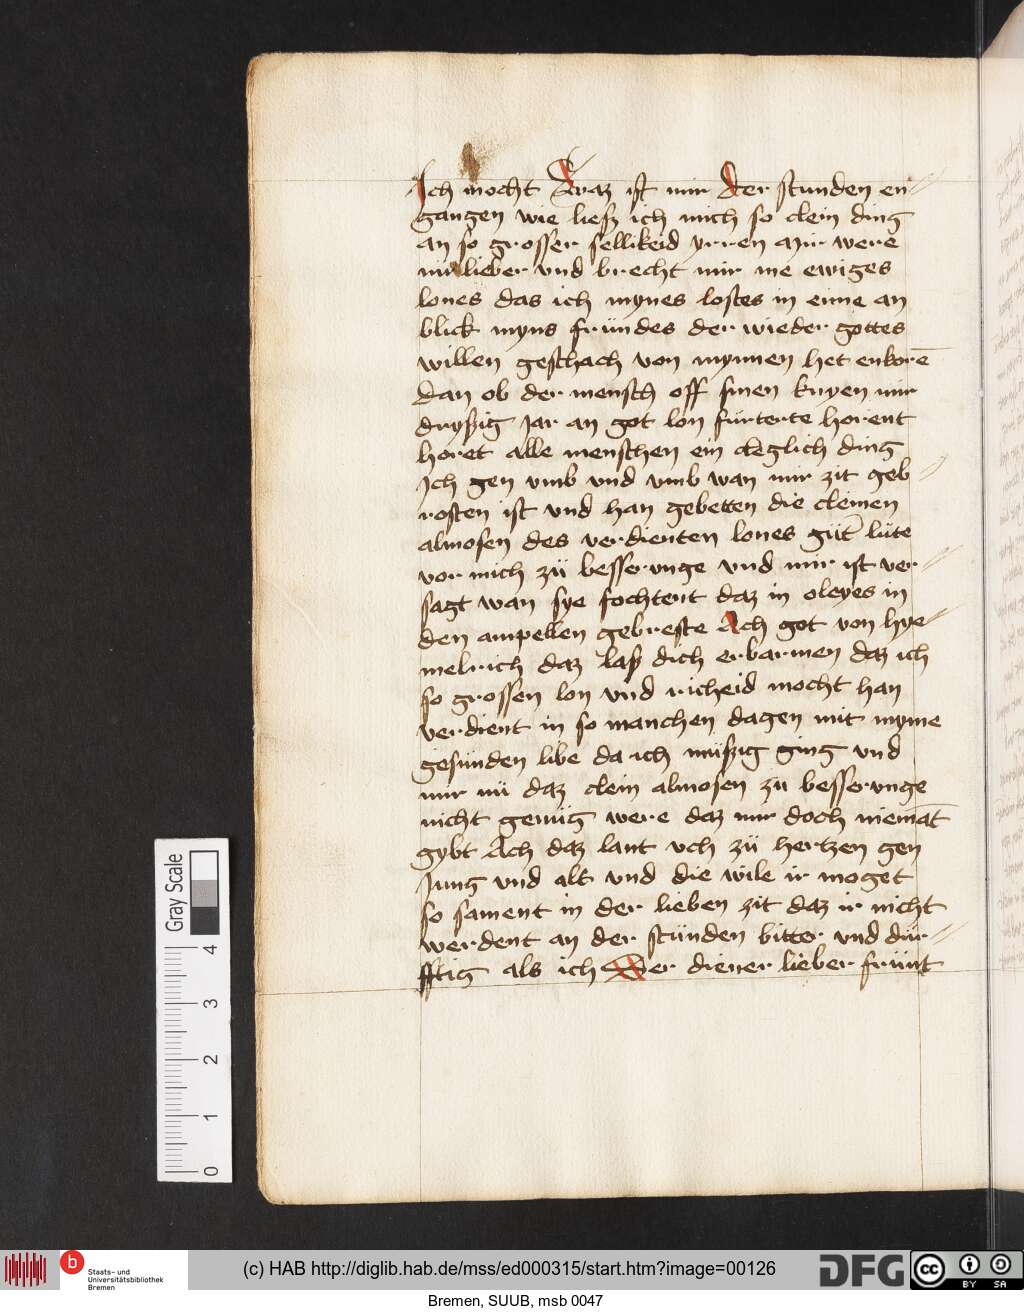 Ich mocht Waz ist mir der stunden en
gangen wie liesz ich mich so clein ding
an so grosser sellikeid yrren Mir were
nu lieber vnd brecht mir me ewiges
lones das ich mynes lostes in eime an
blick myns fründes der wieder gottes
willen geschach von mynnen het enborē
dan ob der mensch off sinen knyen mir
dryßig Jar an got lon fürterte horent
horet alle menschen ein cleglich ding
Ich gen vmb vnd vmb wan mir zit geb
rosten ist vnd han gebetten die cleinen
almosen des verdienten lones güt lüte
vor mich zü besserunge vnd mir ist ver
sagt wan sye fochtent daz in oleyes in
den ampellen gebreste Ach got von hye
melrich daz laß dich erbarmen daz ich
so grossen lon vnd richeid mocht han
verdient in so manchen dagen mit myme
gesünden libe da ich müßig ging vnd
mir nü daz clein almosen zü besserunge
nicht genüg were daz mir doch niemāt
gybt Ach daz lant vch zü hertzen gen
Jung vnd alt vnd die wile ir moget
so sament in der lieben zit daz ir nicht
werdent an der stünden bitter vnd dür
fftig als ich Der diener lieber frünt
Gray Scale
4
3
2
1
0
b
Staats- und
Universitätsbibliothek
Bremen
(c) HAB http://diglib.hab.de/mss/ed000315/start.htm?image=00126
DFG
cc
BY SA
Bremen, SUUB, msb 0047